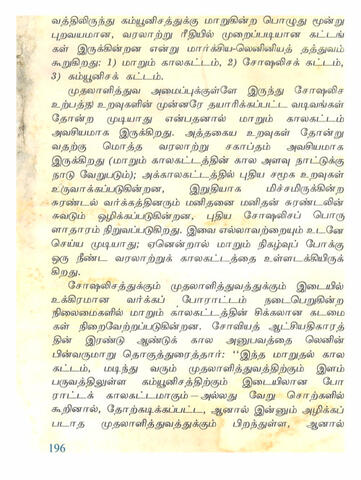 வத்திலிருந்து கம்யூனிசத்துக்கு மாறுகின்ற பொழுது மூன்று
புறவயமான, வரலாற்று ரீதியில் முறைப்படியான கட்டங்
கள் இருக்கின்றன என்று மார்க்சிய-லெனினியத் தத்துவம்
கூறுகிறது: 1) மாறும் காலகட்டம், 2) சோஷலிசக் கட்டம்,
3) கம்யூனிசக் கட்டம்.
முதலாளித்துவ அமைப்புக்குள்ளே இருந்து சோஷலிச
உற்பத்தி உறவுகளின் முன்னரே தயாரிக்கப்பட்ட வடிவங்கள்
தோன்ற முடியாது என்பதனால் மாறும் காலகட்டம்
அவசியமாக இருக்கிறது. அத்தகைய உறவுகள் தோன்று
வதற்கு மொத்த வரலாற்று சகாப்தம் அவசியமாக
இருக்கிறது (மாறும் காலகட்டத்தின் கால அளவு நாட்டுக்கு
நாடு வேறுபடும்); அக்காலகட்டத்தில் புதிய சமூக உறவுகள்
உருவாக்கப்படுகின்றன, இறுதியாக மிச்சமிருக்கின்ற
சுரண்டல் வர்க்கத்தினரும் மனிதனை மனிதன் சுரண்டலின்
சுவடும் ஒழிக்கப்படுகின்றன, புதிய சோஷலிசப் பொரு
ளாதாரம் நிறுவப்படுகிறது. இவை எல்லாவற்றையும் உடனே
செய்ய முடியாது; ஏனென்றால் மாறும் நிகழ்வுப் போக்கு
ஒரு நீண்ட வரலாற்றுக் காலகட்டத்தை உள்ளடக்கியிருக்
கிறது.
சோஷலிசத்துக்கும் முதலாளித்துவத்துக்கும் இடையில்
உக்கிரமான வர்க்கப் போராட்டம் நடைபெறுகின்ற
நிலைமைகளில் மாறும் காலகட்டத்தின் சிக்கலான கடமை
கள் நிறைவேற்றப்படுகின்றன. சோவியத் ஆட்சியதிகாரத்
தின் இரண்டு ஆண்டுக் கால அனுபவத்தை லெனின்
பின்வருமாறு தொகுத்துரைத்தார்: "இந்த மாறுதல் கால
கட்டம், மடிந்து வரும் முதலாளித்துவத்திற்கும் இளம்
பருவத்திலுள்ள கம்யூனிசத்திற்கும் இடையிலான போ
ராட்டக் காலகட்டமாகும்—அல்லது வேறு சொற்களில்
கூறினால், தோற்கடிக்கப்பட்ட, ஆனால் இன்னும் அழிக்கப்
படாத முதலாளித்துவத்துக்கும் பிறந்துள்ள, ஆனால்
196